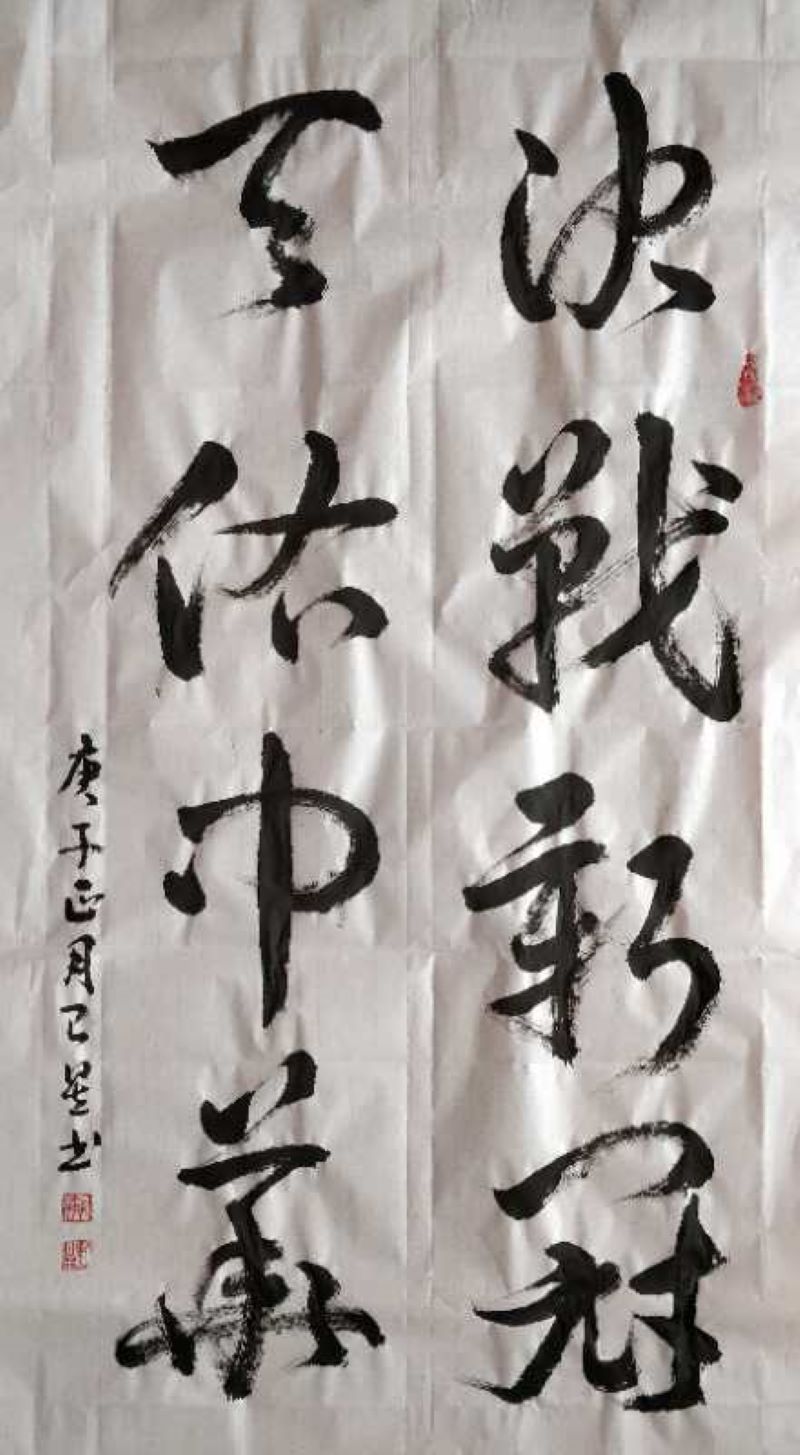 决戰新冠
天佑中華
庚子正月己星书